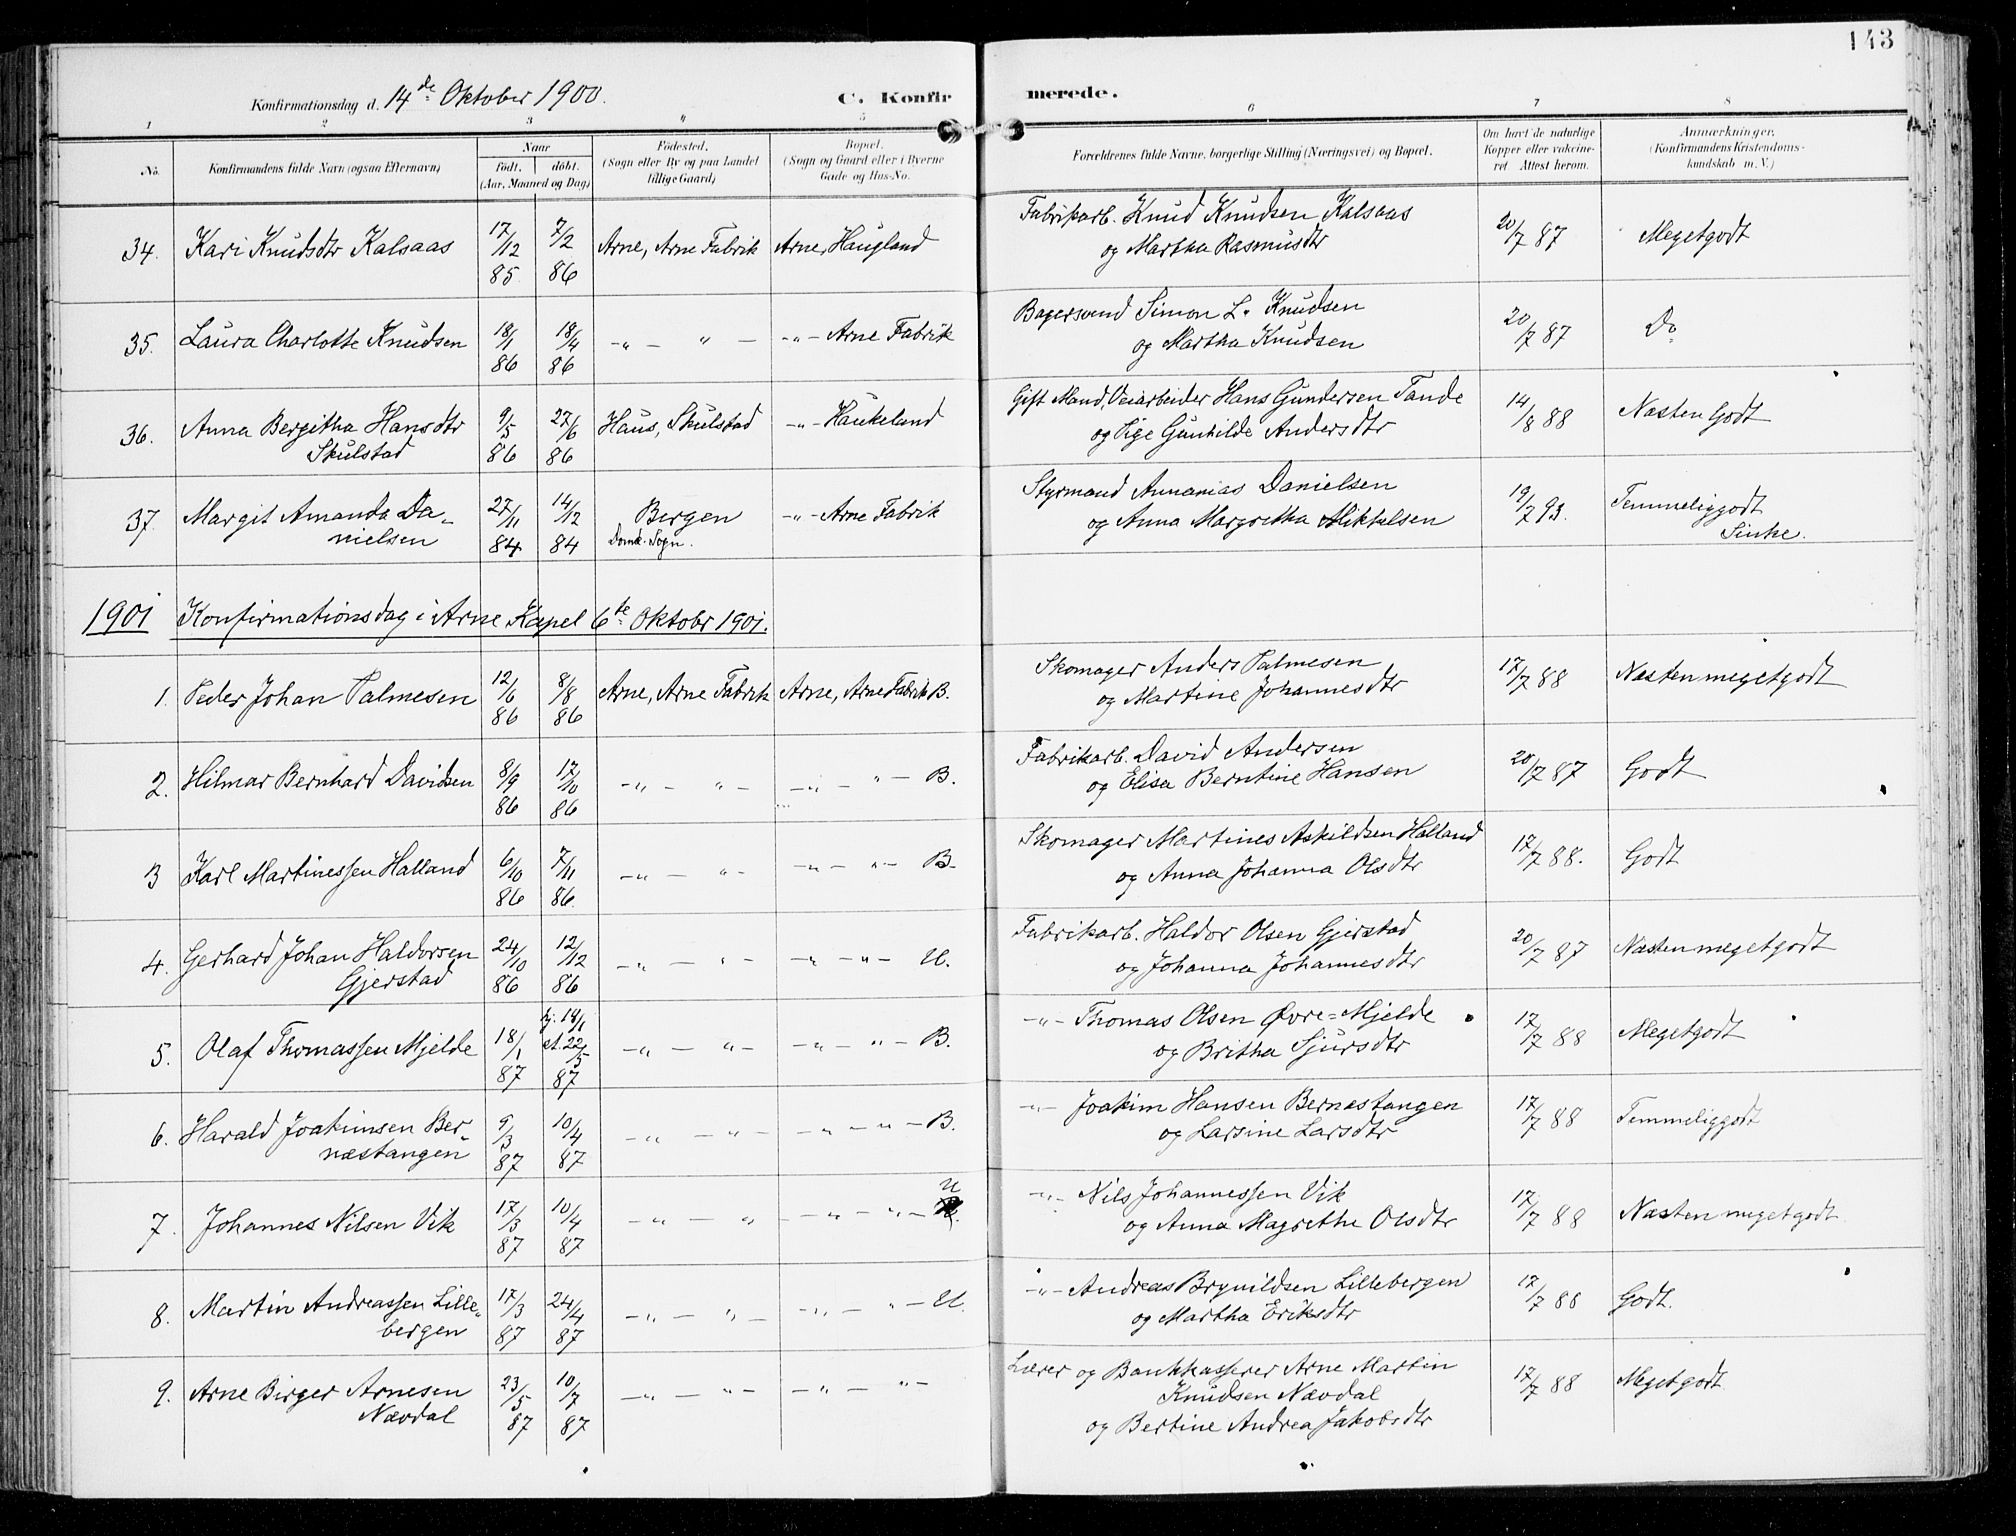 143
Konfirmationsdag d. 14de Oktober 1900. C. Konfirmerede.
1 2 3 4 5 6 7 8
No. Konfirmandens fulde Navn (ogsaa Efternavn) Naar födt. döbt. (Aar, Maaned og Dag) Födested. (Sogn eller By og paa Landet tillige Gaard) Bopæl. (Sogn og Gaard eller i Byerne Gade og Hus-No. Forældrenes fulde Navne, borgerlige Stilling (Næringsvei) og Bopæl. Om havt de naturlige Kopper eller vaccineret. Attest herom. Anmærkninger. (Konfirmandens Kristendomskundskab m. V.)
34. Kari Knudsdtr Kalsaas 17/12 85 7/2 86 Arne, Arne Fabrik Arne, Haugland Fabrikarb. Knud Knudsen Kalsaas 20/7 87 Megetgodt
og Martha Rasmusdtr
35. Laura Charlotte Knudsen 18/1 86 18/4 86 -„- „ - -„- Arne Fabrik Bagersvend Simon L. Knudsen 20/7 87 Do
og Martha Knudsen
36. Anna Bergitha Hansdtr 9/5 86 27/6 86 Haus, Skulstad -„- Haukeland Gift Mand, Veiarbeider Hans Gundersen Tande 14/8 88 Næsten Godt
Skulstad og Pige Gunhilde Andersdtr
37. Margit Amanda Da- 27/11 84 14/12 84 Bergen -„- Arne Fabrik Styrmand Annanias Danielsen 19/7 93. Temmeliggodt
nielsen Domk. Sogn. og Anna Margretha Mikkelsen Sinke.
1901 Konfirmationsdag i Arne Kapel 6te Oktobr 1901.
1. Peder Johan Palmesen 12/6 86 8/8 86 Arne, Arne Fabrik Arne, Arne Fabrik B. Skomager Anders Palmesen 17/7 88 Næsten megetgodt
og Martine Johannesdtr
2. Hilmar Bernhard Davidsen 8/9 86 17/10 86 -„- „ - -„- „ - B. Fabrikarb. David Andersen 20/7 87 Godt
og Elisa Berntine Hansen
3 Karl Martinessen Halland 6/10 86 7/11 86. -„- „ - -„- „ - B. Skomager Martines Askildsen Halland 17/7 88. Godt
og Anna Johanna Olsdtr
4. Gerhard Johan Haldorsen 24/10 86 12/12 86 -„- „ - -„- „ - U. Fabrikarb. Haldor Olsen Gjerstad 20/7 87 Næsten megetgodt
Gjerstad og Johanna Johannesdtr
5. Olaf Thomassen Mjelde 18/1 87 hj. 18/1 st. 22/5 87 -„- „ - -„- „ - B. -„- Thomas Olsen Øvre=Mjelde 17/7 88 Megetgodt
og Britha Sjursdtr
6. Harald Joakimsen Ber- 9/3 87 10/4 87 -„- „ - -„- „ - B. -„- Joakim Hansen Bernæstangen 17/7 88 Temmeliggodt
næstangen og Larsine Larsdtr
7. Johannes Nilsen Vik 17/3 87 10/4 87 -„- „ -„- „ - U -„- Nils Johannessen Vik 17/7 88 Næsten megetgodt
og Anna Magrethe Olsdtr
8. Martin Andreassen Lille- 17/3 87 24/4 87 -„- „ - -„- „ - U. -„- Andreas Brynildsen Lillebergen 17/7 88 Godt.
bergen og Martha Eriksdtr
9. Arne Birger Arnesen 23/5 87 10/7 87 -„- „ - -„- „ - Lærer og Bankkasserer Arne Martin 17/7 88 Megetgodt
Nævdal Knudsen Nævdal
og Bertine Andrea Jakobsdtr